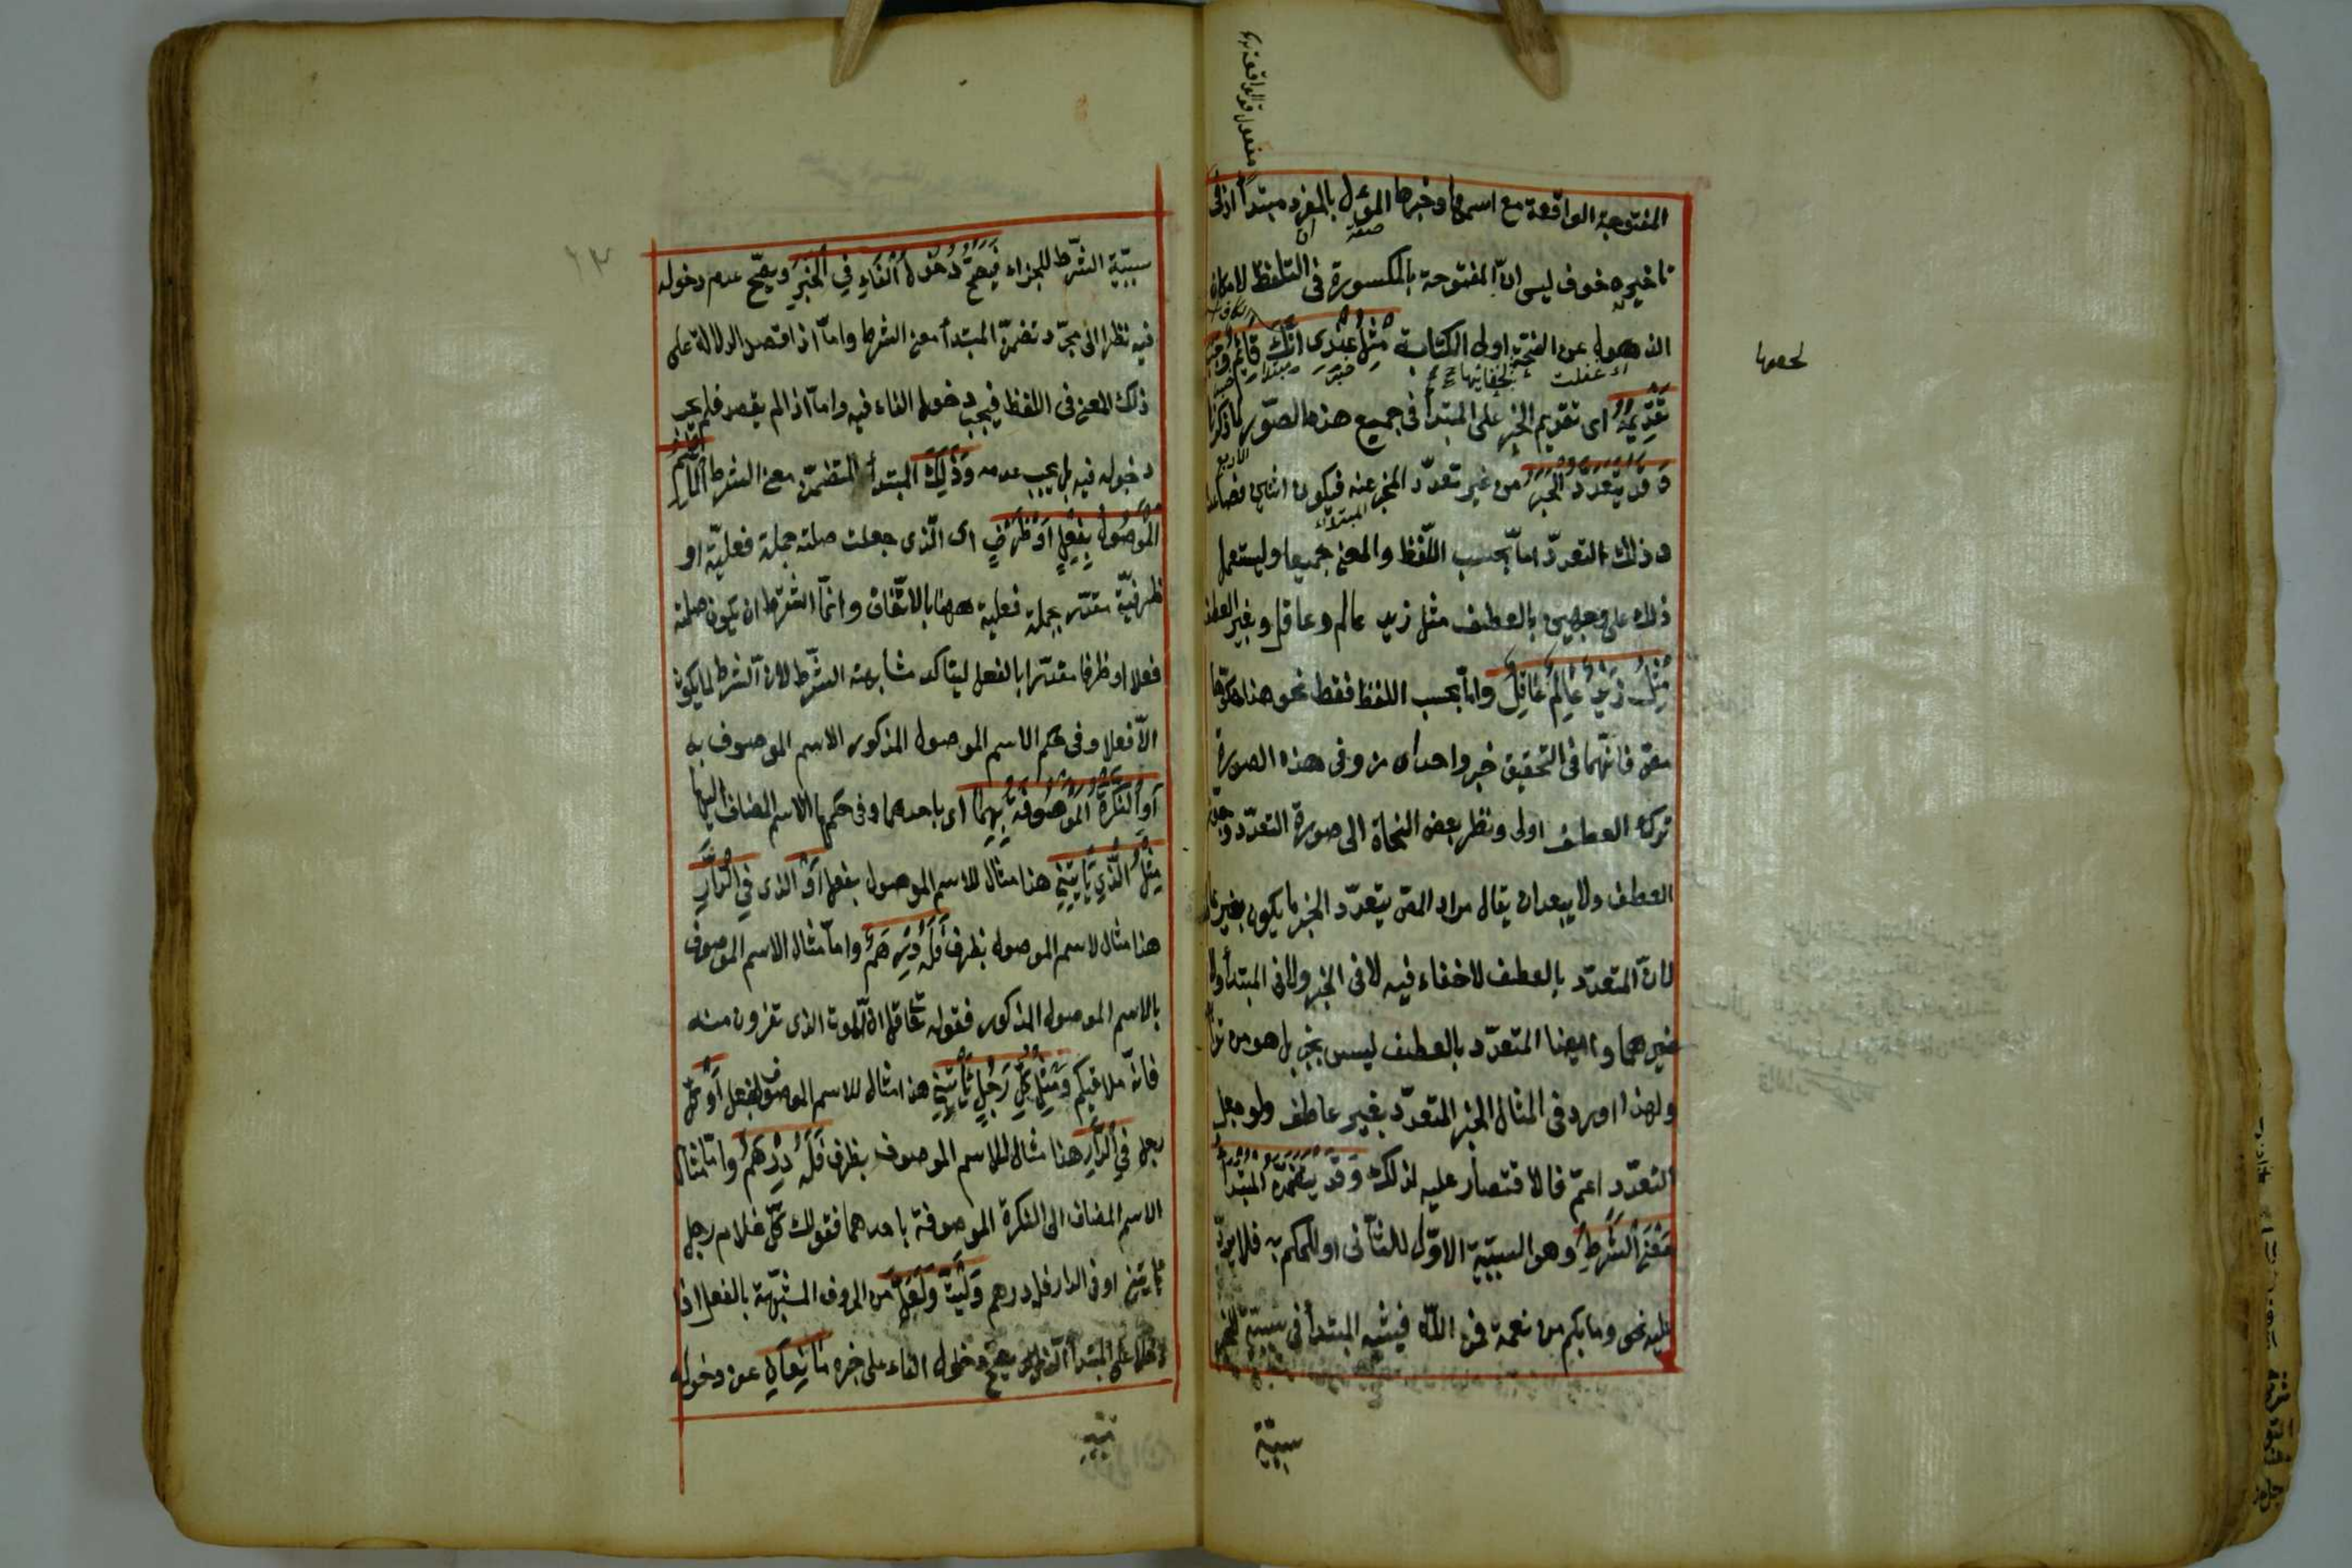 المفتوحة الواقعة مع اسمها وخبرها المؤول بالمفرد مبتدأ اذ فى
تاخيره خوف لبس انّ المفتوحة بالمكسورة فى التلفظ لامكان
الذهول عن الفتحة او فى الكتابة مثل عندى انّك قائم وجب
تقديمه اى تقديم الخبر على المبتدأ فى جميع هذه الصّور لما ذكرنا
وقد يتعدّد الخبر من غير تعدّد المخبر عنه فيكون اثنين فصاعدا
وذلك التعدّد امّا بحسب اللّفظ والمعنى جميعا ويستعمل
ذلك على وجهين بالعطف مثل زيد عالم وعاقل وبغير العطف
مثل زيد عالم عاقل وامّا بحسب اللفظ فقط نحو هذا حلو حامض
فانّهما فى التحقيق خبر واحد اى مز وفى هذه الصورة
ترك العطف اولى ونظر بعض النحاة الى صورة التعدّد وجوّز
العطف ولا يبعد ان يقال مراد المص بتعدّد الخبر ما يكون بغير عاطف
لانّ المتعدّد بالعطف لاخفاء فيه لا فى الخبر ولا فى المبتدأ ولا
غيرهما وايضا المتعدّد بالعطف ليس بخبر بل هو من توابعه
ولهذا اورد فى المثال الخبر المتعدّد بغير عاطف ولو جعل
التعدّد اعمّ فالاقتصار عليه لذلك وقد يتضمّن المبتدأ
معنى الشّرط وهو السببيّة الاوّل للثّانى او للحكم به فلا يرد
عليه نحو وما بكم من نعمة فمن اللّه فيشبه المبتدأ فى سببيّته للخبر
سببيّة
سببيّة الشّرط للجزاء فيصحّ دخول الفاء في الخبر ويصحّ عدم دخوله
فيه نظرا الى مجرّد تضمّن المبتدأ معنى الشرط وامّا اذا قصد الدلالة على
ذلك المعنى فى اللفظ فيجب دخول الفاء فيه وامّا اذا لم يقصد فلم يجب
دخوله فيه بل يجب عدمه وذلك المبتدأ المتضمّن معنى الشرط امّا الاسم
الموصول بفعل او ظرف اى الّذى جعلت صلته جملة فعليّة او
ظرفيّة مقدّر بجملة فعلية ههنا بالاتّفاق وانّما اشترط ان يكون صلته
فعلا او ظرفا مقدّرا بالفعل ليتاكد مشابهته الشّرط لانّ الشرط لا يكون
الّا فعلا وفى حكم الاسم الموصول المذكور الاسم الموصوف به
أو النّكرة الموصوفة بهما اى باحدهما وفى حكمها الاسم المضاف اليها
مثل الّذي يأتيني هذا مثال للاسم الموصول بفعل أو الذى في الدّار
هذا مثال لاسم الموصول بظرف فله درهم وامّا مثال الاسم الموصوف
بالاسم الموصول المذكور فقوله تعا قل انّ الموت الذى تفرّون منه
فانّه ملاقيكم ومثل كلّ رجل يأتيني هذا مثال للاسم الموصوف بفعل أو كلّ
رجل في الدّار هذا مثال للاسم الموصوف بظرف فله درهم وامّا مثال
الاسم المضاف الى النكرة الموصوفة باحدهما فقولك كلّ غلام رجل
يأتيني او فى الدار فله درهم وليت ولعلّ من الحروف المشبّهة بالفعل اذا
دخلا على المبتدأ الّذى يصحّ دخول الفاء على خبره مانعان عن دخوله